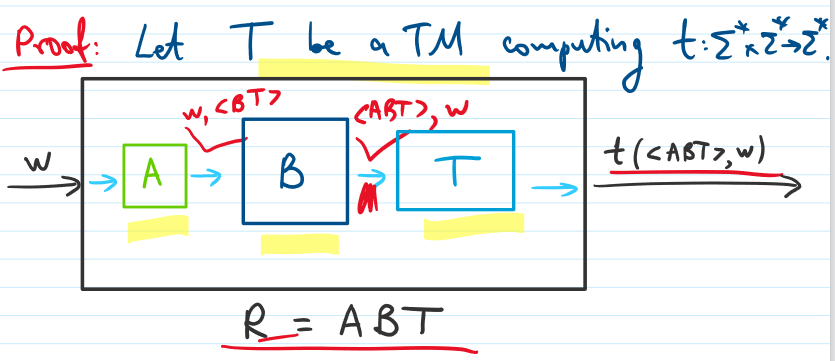 Proof: Let T be a TM computing t:Σ*×Σ*→Σ*.
w, <BT> <ABT>, w
w A B T t(<ABT>, w)
R = ABT